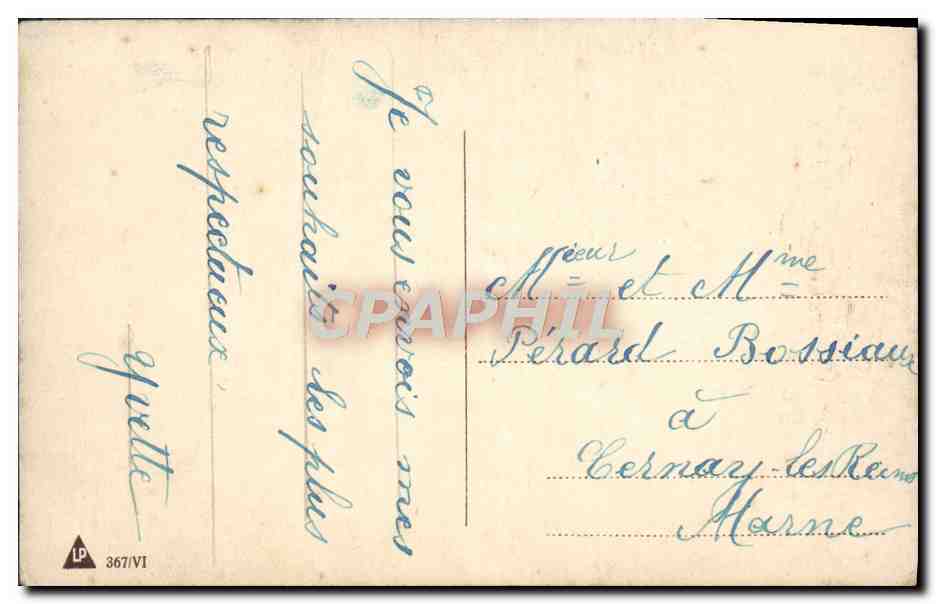 Je vous envois mes
souhaits les plus
respectueux,
Yvette
Mieur et Mme
Pérard Bossiaux
à
Cernay-les-Reims
Marne
LP 367/VI
CPAPHIL